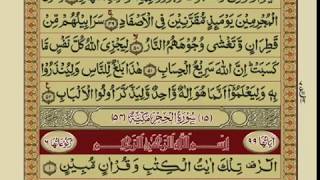 الْمُجْرِمِیْنَ یَوْمَىِٕذٍ مُّقَرَّنِیْنَ فِی الْاَصْفَادِ ۴۹ سَرَابِیْلُهُمْ مِّنْ
قَطِرَانٍ وَّ تَغْشٰى وُجُوْهَهُمُ النَّارُ ۵۰ لِیَجْزِیَ اللّٰهُ كُلَّ نَفْسٍ مَّا
كَسَبَتْ اِنَّ اللّٰهَ سَرِیْعُ الْحِسَابِ ۵۱ هٰذَا بَلٰغٌ لِّلنَّاسِ وَ لِیُنْذَرُوْا
بِهٖ وَ لِیَعْلَمُوْۤا اَنَّمَا هُوَ اِلٰهٌ وَّاحِدٌ وَّ لِیَذَّكَّرَ اُولُوا الْاَلْبَابِ ۵۲
(۱۵) سُوْرَةُ الْحِجْرِ مَكِّیَّةٌ (۵۴)
اٰیَاتُهَا ۹۹ بِسْمِ اللّٰهِ الرَّحْمٰنِ الرَّحِیْمِ رُكُوْعَاتُهَا ۶
الٓرٰ تِلْكَ اٰیٰتُ الْكِتٰبِ وَ قُرْاٰنٍ مُّبِیْنٍ ۱